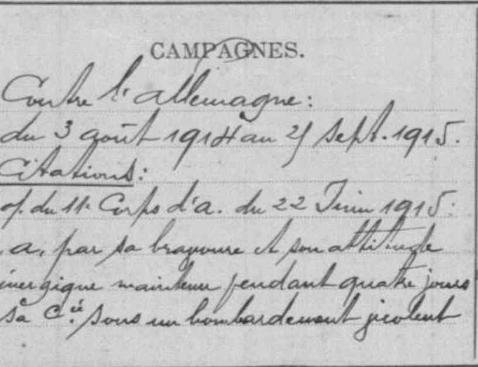 CAMPAGNES.
Contre l'allemagne:
du 3 août 1914 au 25 sept. 1915.
Citations:
du 11e Corps d'a. du 22 Juin 1915:
a, par sa bravoure et son attitude
énergique maintenu pendant quatre jours
sa Cie. sous un bombardement violent